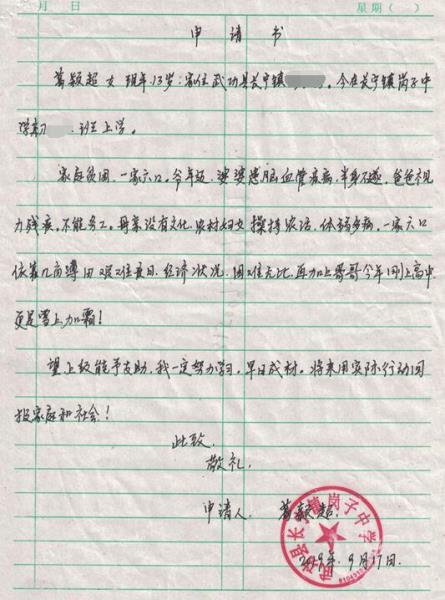 月 日 星期( )
申请书
葛颖超 女 现年13岁:家住武功县长宁镇 . 今在长宁镇岗子中
学初 班上学。
家庭贫困,一家六口。爷年级、婆婆患脑血管疾病,半身不遂,爸爸视
力残疾,不能务工。母亲没有文化,农村妇女操持农活,体弱多病。一家六口
依靠几亩薄田艰难度日.经济状况,困难无比,再加上哥哥今年刚上高中
更是雪上加霜!
望上级能予支助,我一定努力学习,早日成材。将来用实际行动回
报家庭和社会!
此致
敬礼.
申请人 葛颖超.
武功县长宁镇岗子中学
2019年.9月17日.